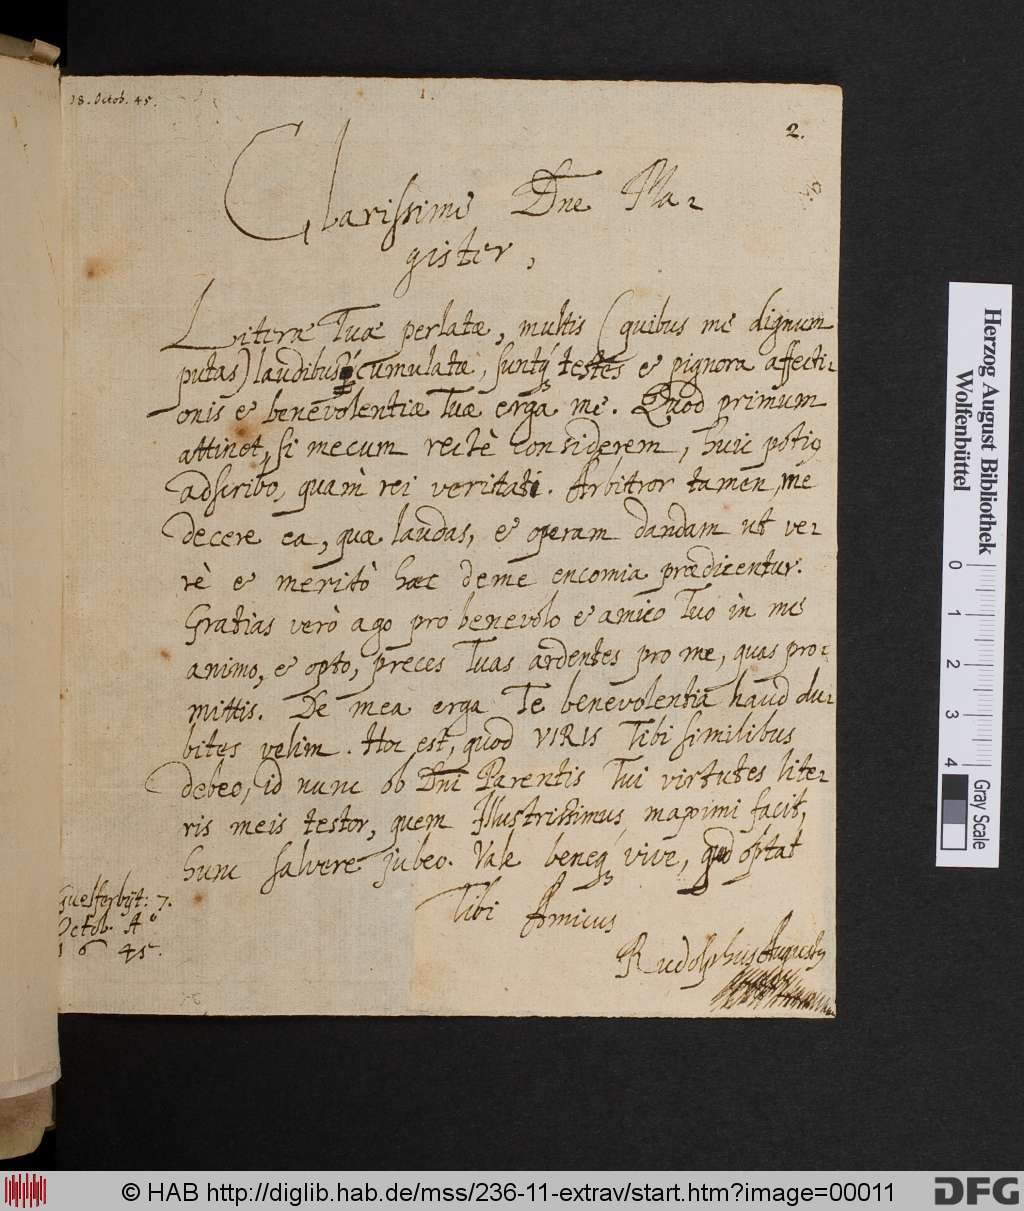 18. Octob. 45.
1.
2.
Clarissime Dne Ma-
gister,
Literæ Tuæ perlatæ, multis (quibus me dignum
putas) laudibus cumulatæ, suntq́ testes & pignora affecti-
onis & benevolentiæ Tuæ erga me. Quod primum
attinet, si mecum rectè considerem, huic potiꝰ
adscribo, quàm rei veritati. Arbitror tamen, me
decere ea, quæ laudas, & operam dandam ut ve-
rè & meritò hæc de me encomia prædicentur.
Gratias verò ago pro benevolo & amico Tuo in me
animo, & opto, preces Tuas ardentes pro me, quas pro-
mittis. De mea erga Te benevolentia haud du-
bites velim. Hoc est, quod VIRIS Tibi similibus
debeo, id nunc ob Dni Parentis Tui virtutes lite-
ris meis testor, quem Illustrissimus maximi facit,
hunc salvere jubeo. Vale beneq́ vive, quod optat
Tibi Amicus
Rudolphus Augustꝰ
Guelferbÿt: 7.
Octob. Aº
1645.
Herzog August Bibliothek
Wolfenbüttel
0 1 2 3 4
Gray Scale
© HAB http://diglib.hab.de/mss/236-11-extrav/start.htm?image=00011
DFG